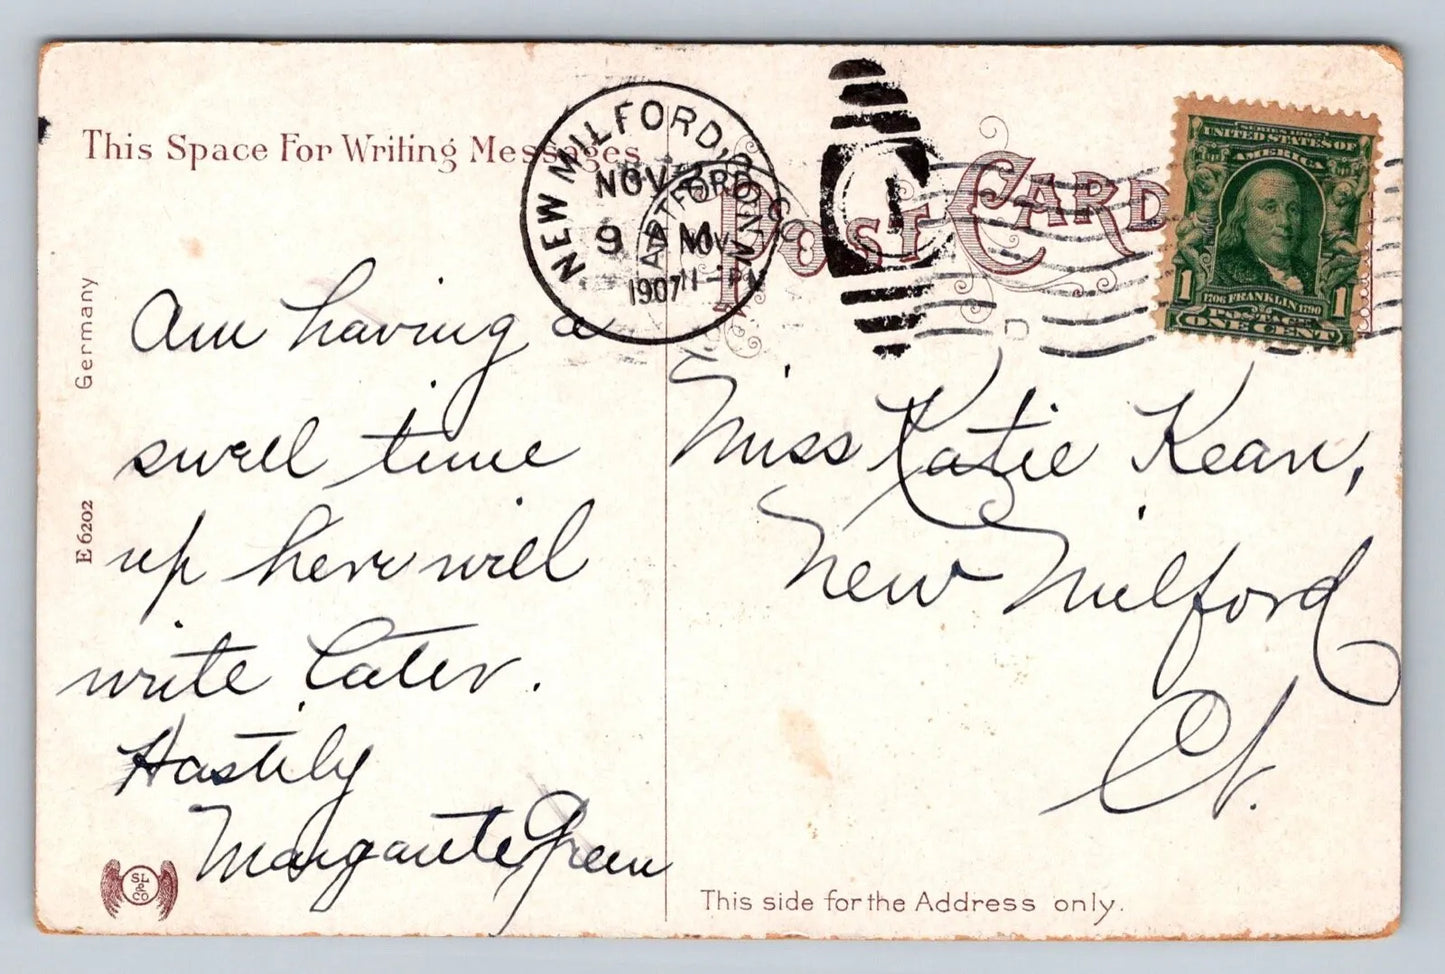 This Space For Writing Messages
POST CARD
NEW MILFORD, CONN.
NOV
9 AM
1907
HARTFORD
NOV
11-PM
1
SERIES 1902
UNITED STATES OF
AMERICA
1 1
1706 FRANKLIN 1790
POSTAGE
ONE CENT
Germany
E 6202
Am having a
swell time
up here will
write later.
Hastily
Margarite Green
Miss Katie Kean,
New Milford
Ct.
SL
&
CO
This side for the Address only.